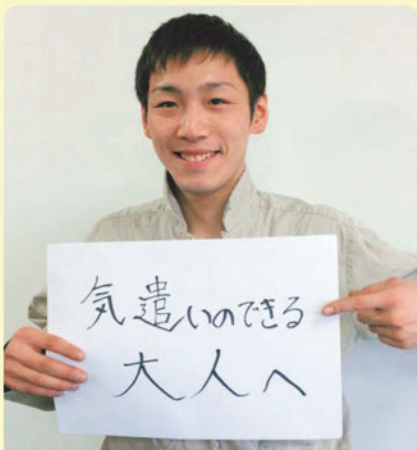 気遣いのできる
大人へ